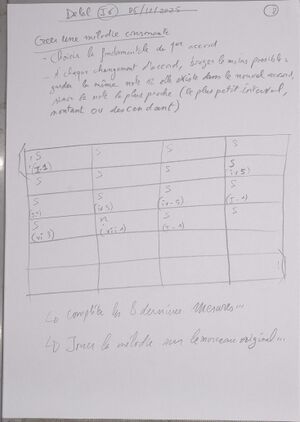 05/12/2025
Créer une mélodie consonante
- Choisir la fondamentale du 1er accord
- A chaque changement d'accord, bouger le moins possible :
garder la même note si elle existe dans le nouvel accord,
sinon la note la plus proche (le plus petit intervalle,
montant ou descendant)
S S S S
(I-1) (iv 5)
S S S S
S S S S
(iv 5) (iv-5) (I-1)
S n S S
(vi 3) (vii 1) (I-1)
↳ compléter les 8 dernières mesures...
↳ Jouer la mélodie sur le morceau original...